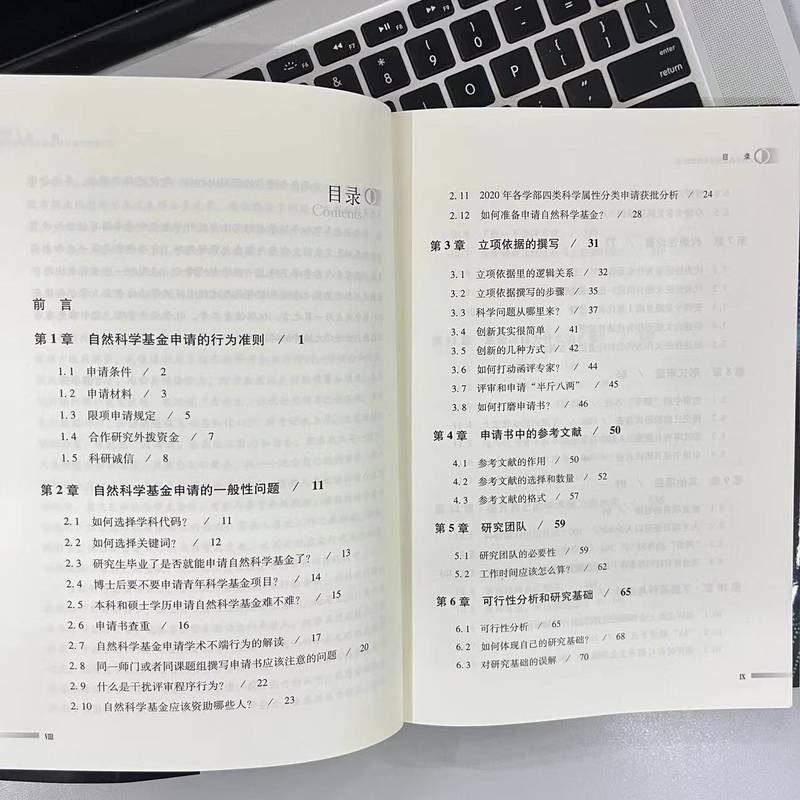 F6
F7
F8
F9
F10
F11
F12
&
*
(
)
7
8
9
0
return
目录
Contents
前 言
第1章 自然科学基金申请的行为准则 / 1
1.1 申请条件 / 2
1.2 申请材料 / 3
1.3 限项申请规定 / 5
1.4 合作研究外拨资金 / 7
1.5 科研诚信 / 8
第2章 自然科学基金申请的一般性问题 / 11
2.1 如何选择学科代码？ / 11
2.2 如何选择关键词？ / 12
2.3 研究生毕业了是否就能申请自然科学基金了？ / 13
2.4 博士后要不要申请青年科学基金项目？ / 14
2.5 本科和硕士学历申请自然科学基金难不难？ / 15
2.6 申请书查重 / 16
2.7 自然科学基金申请学术不端行为的解读 / 17
2.8 同一师门或者同课题组撰写申请书应该注意的问题 / 20
2.9 什么是干扰评审程序行为？ / 22
2.10 自然科学基金应该资助哪些人？ / 23
VIII
目 录
2.11 2020年各学部四类科学属性分类申请获批分析 / 24
2.12 如何准备申请自然科学基金？ / 28
第3章 立项依据的撰写 / 31
3.1 立项依据里的逻辑关系 / 32
3.2 立项依据撰写的步骤 / 35
3.3 科学问题从哪里来？ / 37
3.4 创新其实很简单 / 41
3.5 创新的几种方式 / 42
3.6 如何打动函评专家？ / 44
3.7 评审和申请“半斤八两” / 45
3.8 如何打磨申请书？ / 46
第4章 申请书中的参考文献 / 50
4.1 参考文献的作用 / 50
4.2 参考文献的选择和数量 / 52
4.3 参考文献的格式 / 57
第5章 研究团队 / 59
5.1 研究团队的必要性 / 59
5.2 工作时间应该怎么算？ / 62
第6章 可行性分析和研究基础 / 65
6.1 可行性分析 / 65
6.2 如何体现自己的研究基础？ / 68
6.3 对研究基础的误解 / 70
IX